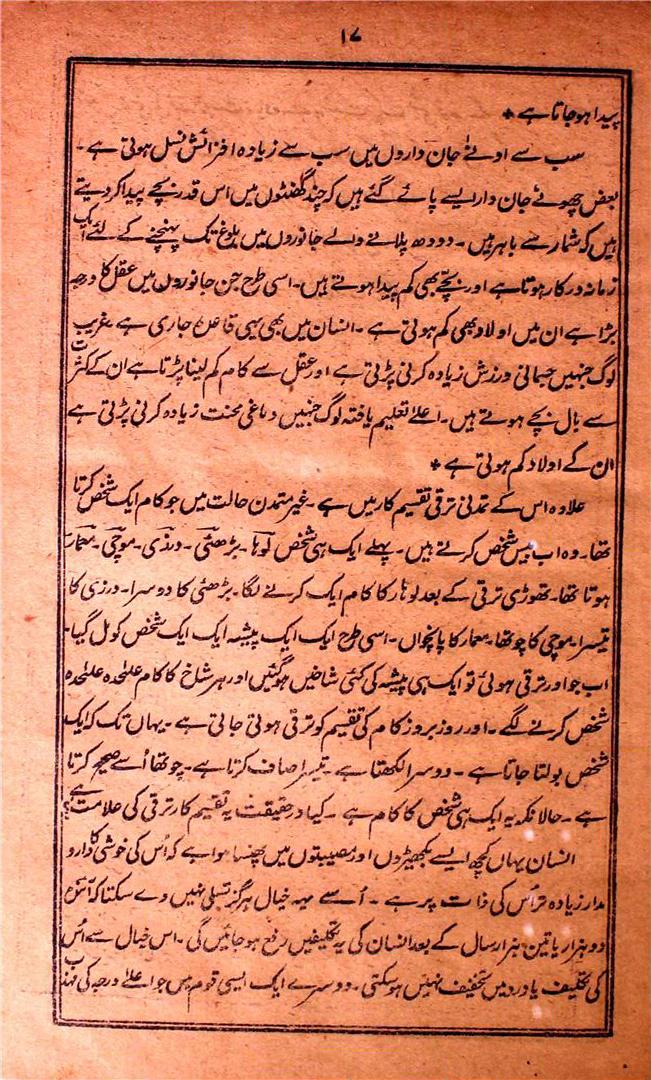 ۱۷
پیدا ہو جاتا ہے +
سب سے ادنےٰ جان داروں میں سب سے زیادہ افزائش نسل ہوتی ہے ۔
بعض چھوٹے جان دار ایسے پائے گئے ہیں کہ چند گھنٹوں میں اس قدر بچے پیدا کر دیتے
ہیں کہ شمار سے باہر ہیں ۔ دودھ پلانے والے جانوروں میں بلوغ تک پہنچنے کے لئے ایک
زمانہ درکار ہوتا ہے اور بچے بھی کم پیدا ہوتے ہیں ۔ اسی طرح جن جانوروں میں عقل کا درجہ
بڑا ہے ان میں اولاد بھی کم ہوتی ہے ۔ انسان میں بھی یہی قاعدہ جاری ہے ۔ غریب
لوگ جنہیں جسمانی ورزش زیادہ کرنی پڑتی ہے اور عقل سے کام کم لینا پڑتا ہے ان کے کثرت
سے بال بچے ہوتے ہیں ۔ اعلےٰ تعلیم یافتہ لوگ جنہیں دماغی محنت زیادہ کرنی پڑتی ہے
ان کے اولاد کم ہوتی ہے +
علاوہ اس کے تمدنی ترقی تقسیم کار میں ہے ۔ غیر متمدن حالت میں جو کام ایک شخص کرتا
تھا ۔ وہ اب بیس شخص کرتے ہیں ۔ پہلے ایک ہی شخص لوہار ۔ بڑھئی ۔ درزی ۔ موچی ۔ معمار
ہوتا تھا ۔ تھوڑی ترقی کے بعد لوہار کا کام ایک کرنے لگا ۔ بڑھئی کا دوسرا ۔ درزی کا
تیسرا ۔ موچی کا چوتھا ۔ معمار کا پانچواں ۔ اسی طرح ایک ایک پیشہ ایک ایک شخص کو مل گیا ۔
اب جو اور ترقی ہوئی تو ایک ہی پیشہ کی کئی شاخیں ہوگئیں اور ہر شاخ کا کام علٰحدہ علٰحدہ
شخص کرنے لگے ۔ اور روز بروز کام کی تقسیم کو ترقی ہوتی جاتی ہے ۔ یہاں تک کہ ایک
شخص بولتا جاتا ہے ۔ دوسرا لکھتا ہے ۔ تیسرا صاف کرتا ہے ۔ چوتھا اُسے صحیح کرتا
ہے ۔ حالانکہ یہ ایک ہی شخص کا کام ہے ۔ کیا درحقیقت یہ تقسیم کار ترقی کی علامت ہے؟
انسان یہاں کچھ ایسے بکھیڑوں اور مصیبتوں میں پھنسا ہوا ہے کہ اُس کی خوشی کا دارو
مدار زیادہ تر اُس کی ذات پر ہے ۔ اُسے یہ خیال ہرگز تسلی نہیں دے سکتا کہ آئندہ
دو ہزار یا تین ہزار سال کے بعد انسان کی یہ تکلیفیں رفع ہو جائیں گی ۔ اس خیال سے اُس
کی تکلیف یا درد میں تخفیف نہیں ہو سکتی ۔ دوسرے ایک ایسی قوم میں جو اعلےٰ درجہ کی